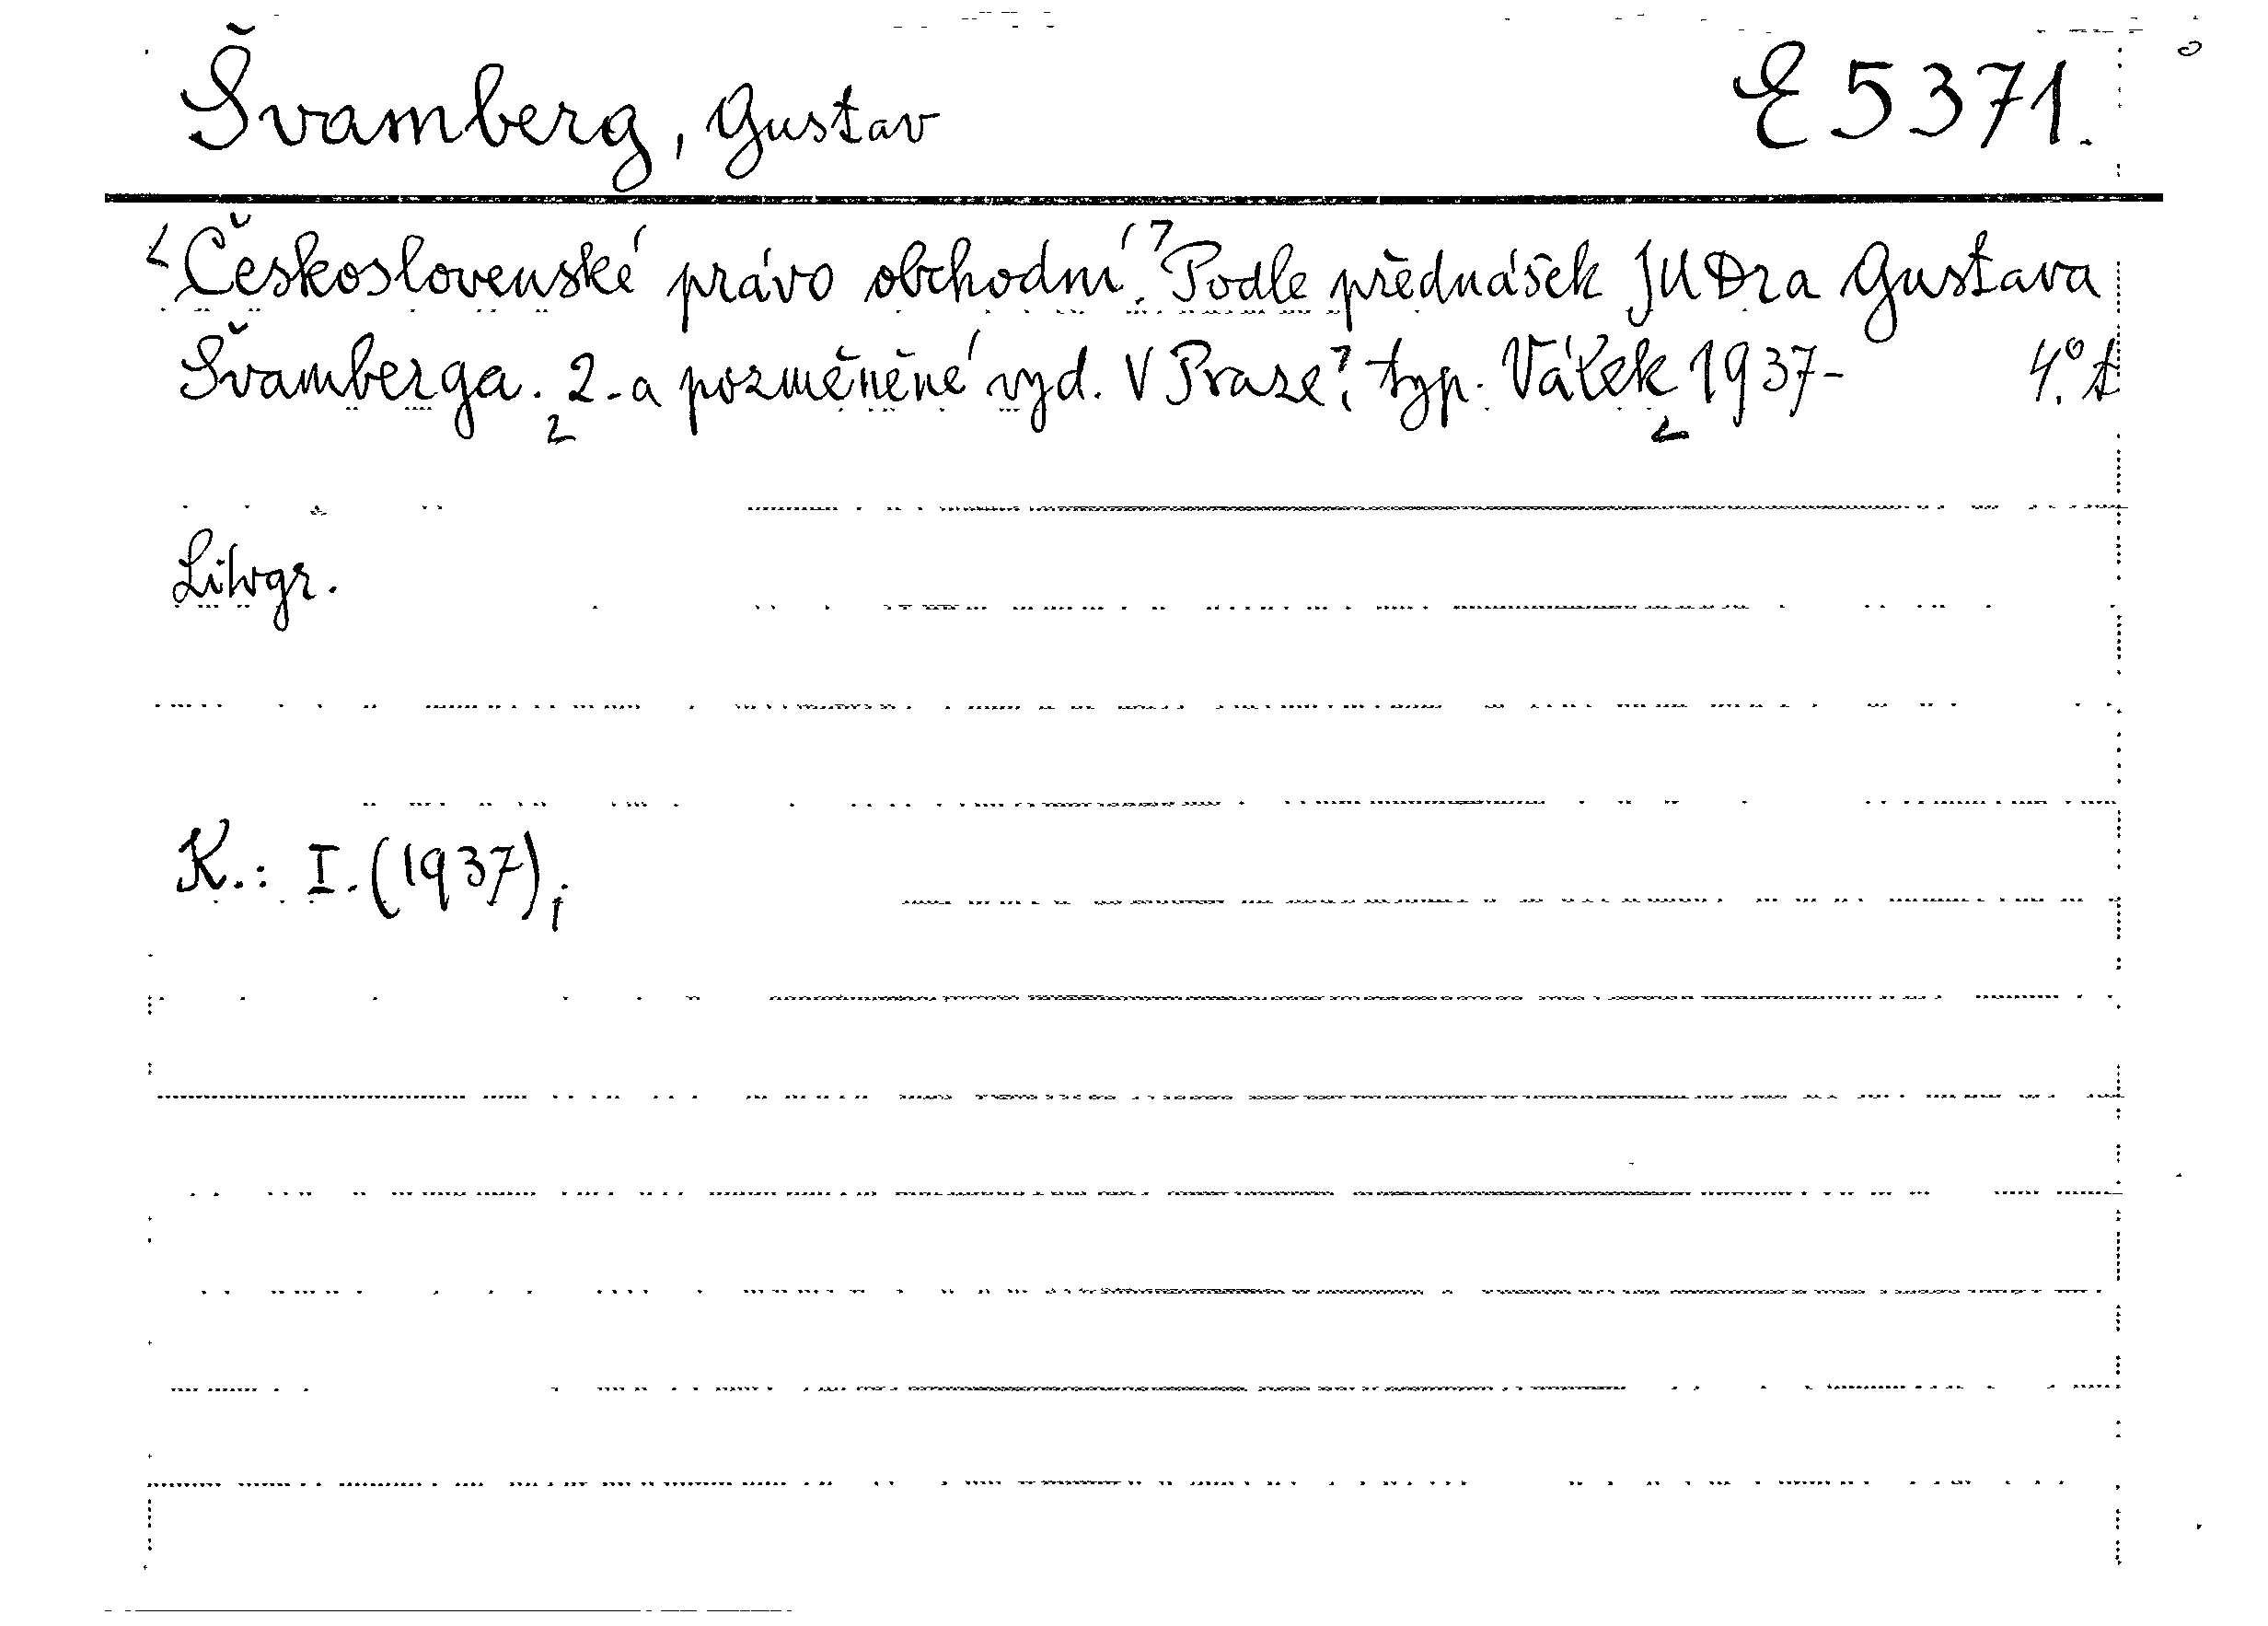 Švamberg, Gustav E 5371.
Československé právo obchodní. Podle přednášek JUDra Gustava
Švamberga. 2. a pozměněné vyd. V Praze, typ. Válek 1937- 4°. A
Lithogr.
K.: I. (1937);